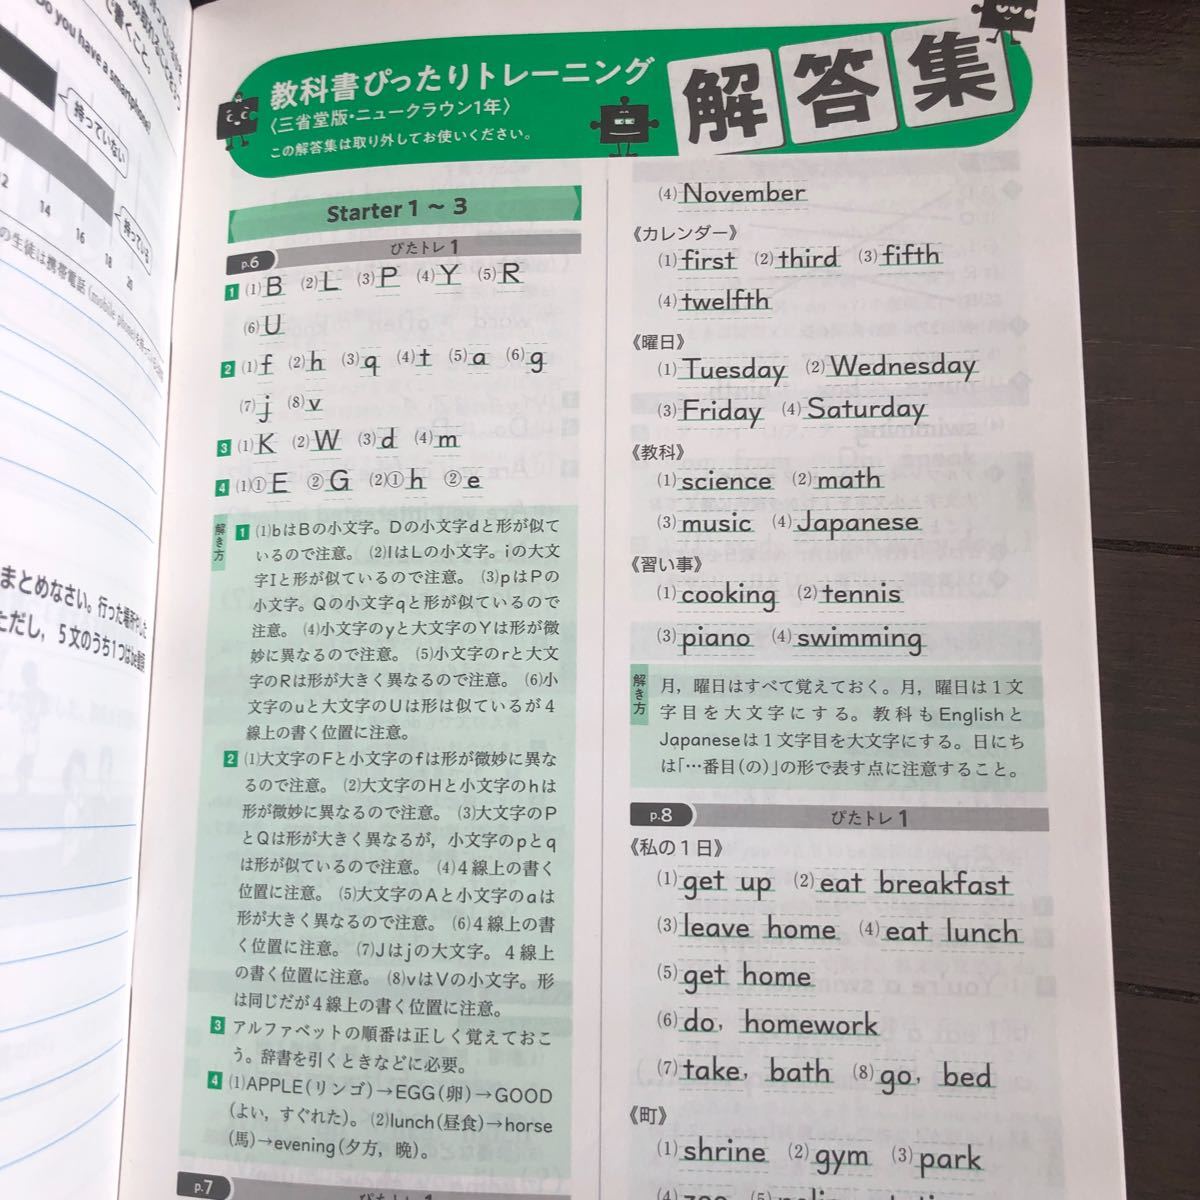 Do you have a smartphone?
で書くこと。
持っていない
持っている
12
14
16
18
20
の生徒は携帯電話(mobile phone)を持っている
まとめなさい。行った場所やした
ただし，5文のうち1つはbe動詞
教科書ぴったりトレーニング
〈三省堂版・ニュークラウン1年〉
この解答集は取り外してお使いください。
解答集
Starter 1 ～ 3
p.6 ぴたトレ 1
1 (1) B (2) L (3) P (4) Y (5) R
(6) U
2 (1) f (2) h (3) q (4) t (5) a (6) g
(7) j (8) v
3 (1) K (2) W (3) d (4) m
4 (1)① E ② G (2)① h ② e
解き方
1 (1)bはBの小文字。Dの小文字dと形が似て
いるので注意。 (2)lはLの小文字。iの大文
字Iと形が似ているので注意。 (3)pはPの
小文字。Qの小文字qと形が似ているので
注意。 (4)小文字のyと大文字のYは形が微
妙に異なるので注意。 (5)小文字のrと大文
字のRは形が大きく異なるので注意。 (6)小
文字のuと大文字のUは形は似ているが4
線上の書く位置に注意。
2 (1)大文字のFと小文字のfは形が微妙に異な
るので注意。 (2)大文字のHと小文字のhは
形が微妙に異なるので注意。 (3)大文字のP
とQは形が大きく異なるが，小文字のpとq
は形が似ているので注意。 (4)4線上の書く
位置に注意。 (5)大文字のAと小文字のaは
形が大きく異なるので注意。 (6)4線上の書
く位置に注意。 (7)Jはjの大文字。4線上
の書く位置に注意。 (8)vはVの小文字。形
は同じだが4線上の書く位置に注意。
3 アルファベットの順番は正しく覚えておこ
う。辞書を引くときなどに必要。
4 (1)APPLE(リンゴ)→EGG(卵)→GOOD
(よい，すぐれた)。 (2)lunch(昼食)→horse
(馬)→evening(夕方，晩)。
p.7 ぴたトレ 1
(4) November
《カレンダー》
(1) first (2) third (3) fifth
(4) twelfth
《曜日》
(1) Tuesday (2) Wednesday
(3) Friday (4) Saturday
《教科》
(1) science (2) math
(3) music (4) Japanese
《習い事》
(1) cooking (2) tennis
(3) piano (4) swimming
解き方
月，曜日はすべて覚えておく。月，曜日は1文
字目を大文字にする。教科もEnglishと
Japaneseは1文字目を大文字にする。日にち
は「…番目(の)」の形で表す点に注意すること。
p.8 ぴたトレ 1
《私の1日》
(1) get up (2) eat breakfast
(3) leave home (4) eat lunch
(5) get home
(6) do, homework
(7) take, bath (8) go, bed
《町》
(1) shrine (2) gym (3) park
(4) zoo (5) police station